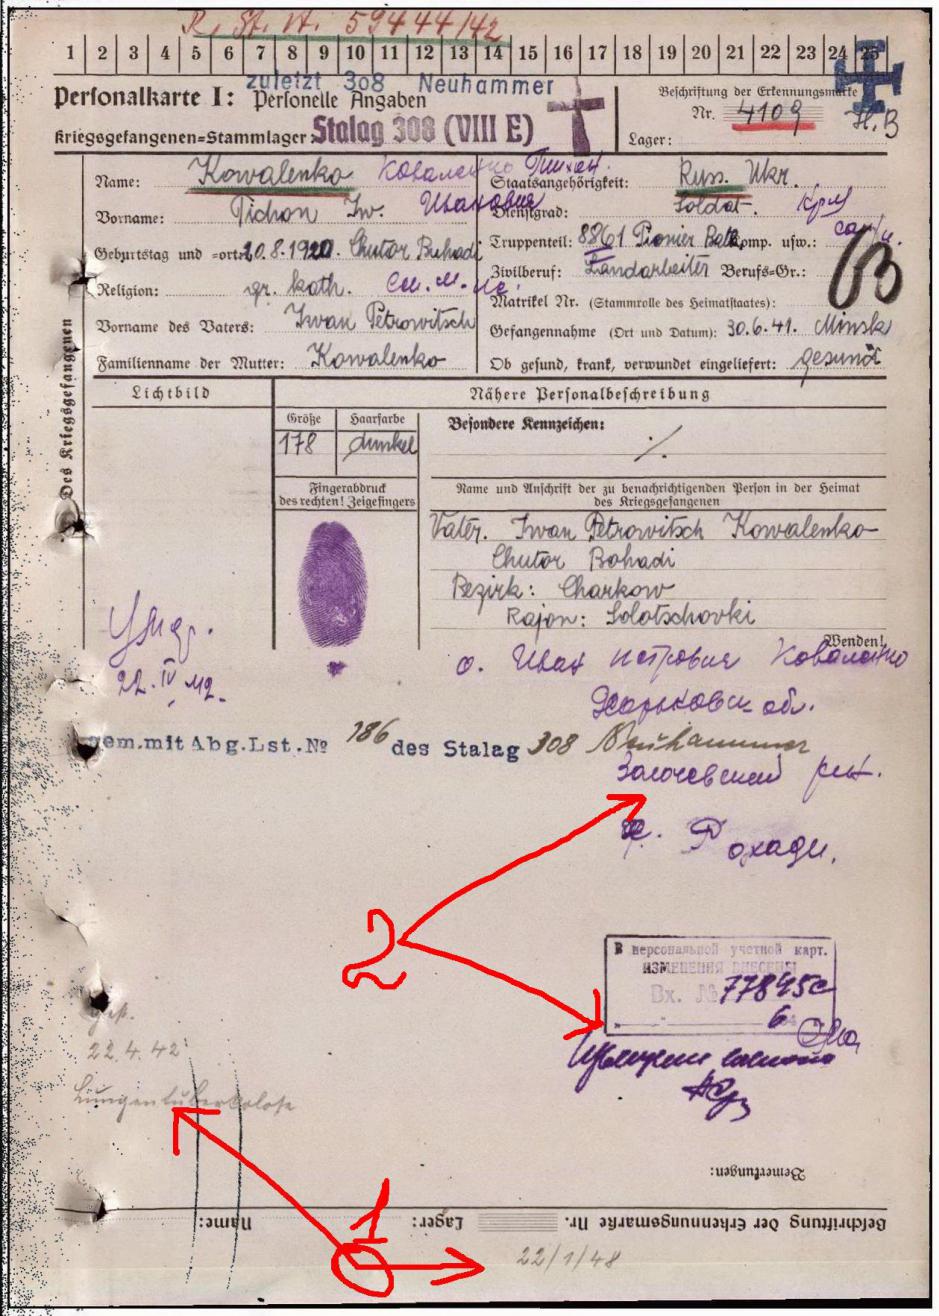 R. St. W. 59444/42
1 2 3 4 5 6 7 8 9 10 11 12 13 14 15 16 17 18 19 20 21 22 23 24 25
zuletzt 308 Neuhammer
Personalkarte I: Personelle Angaben
Kriegsgefangenen=Stammlager Stalag 308 (VIII E)
Beschriftung der Erkennungsmarke
Nr. 4109
Lager:
Des Kriegsgefangenen
Name: Kowalenko Коваленко Тихон
Vorname: Tichon Iw. Иванович
Geburtstag und =ort: 20.8.1920. Chutor Buhadi
Religion: gr. kath.
Vorname des Vaters: Iwan Petrowitsch
Familienname der Mutter: Kowalenko
Staatsangehörigkeit: Russ. Ukr.
Dienstgrad: Soldat.
Truppenteil: 8861 Pionier Batl. Komp. usw.:
Zivilberuf: Landarbeiter Berufs=Gr.:
Matrikel Nr. (Stammrolle des Heimatstaates):
Gefangennahme (Ort und Datum): 30.6.41. Minsk
Ob gesund, krank, verwundet eingeliefert: gesund
Lichtbild
Nähere Personalbeschreibung
Größe
178
Haarfarbe
dunkel
Besondere Kennzeichen:
./.
Fingerabdruck
des rechten! Zeigefingers
Name und Anschrift der zu benachrichtigenden Person in der Heimat
des Kriegsgefangenen
Vater. Iwan Petrowitsch Kowalenko
Chutor Bohadi
Bezirk: Charkow
Rajon: Solotschovki
Wenden!
Умер.
22.IV 42.
о. Иван Петрович Коваленко
Харьковск обл.
gem.mit Abg.Lst.№ 186 des Stalag 308 Neuhammer
Золочевский рн.
х. Рохади.
2
В персональной учетной карт.
ИЗМЕНЕНИЯ ВНЕСЕНЫ
Вх. № 77845с
6
22.4.42
Lungentuberkulose
1
Bemerkungen:
Name: Lager: Beschriftung der Erkennungsmarke Nr.
22/1/48